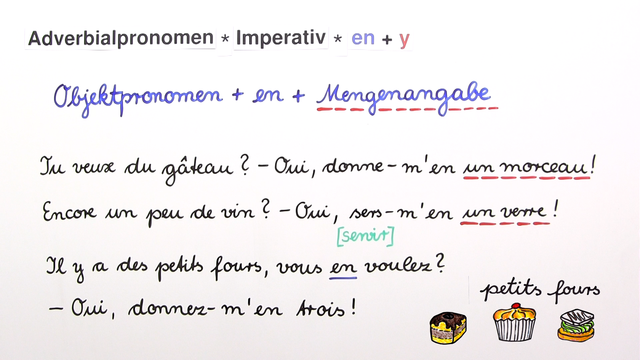 Adverbialpronomen * Imperativ * en + y
Objektpronomen + en + Mengenangabe
Tu veux du gâteau? - Oui, donne-m'en un morceau!
Encore un peu de vin? - Oui, sers-m'en un verre!
[servir]
Il y a des petits fours, vous en voulez?
petits fours
- Oui, donnez-m'en trois!